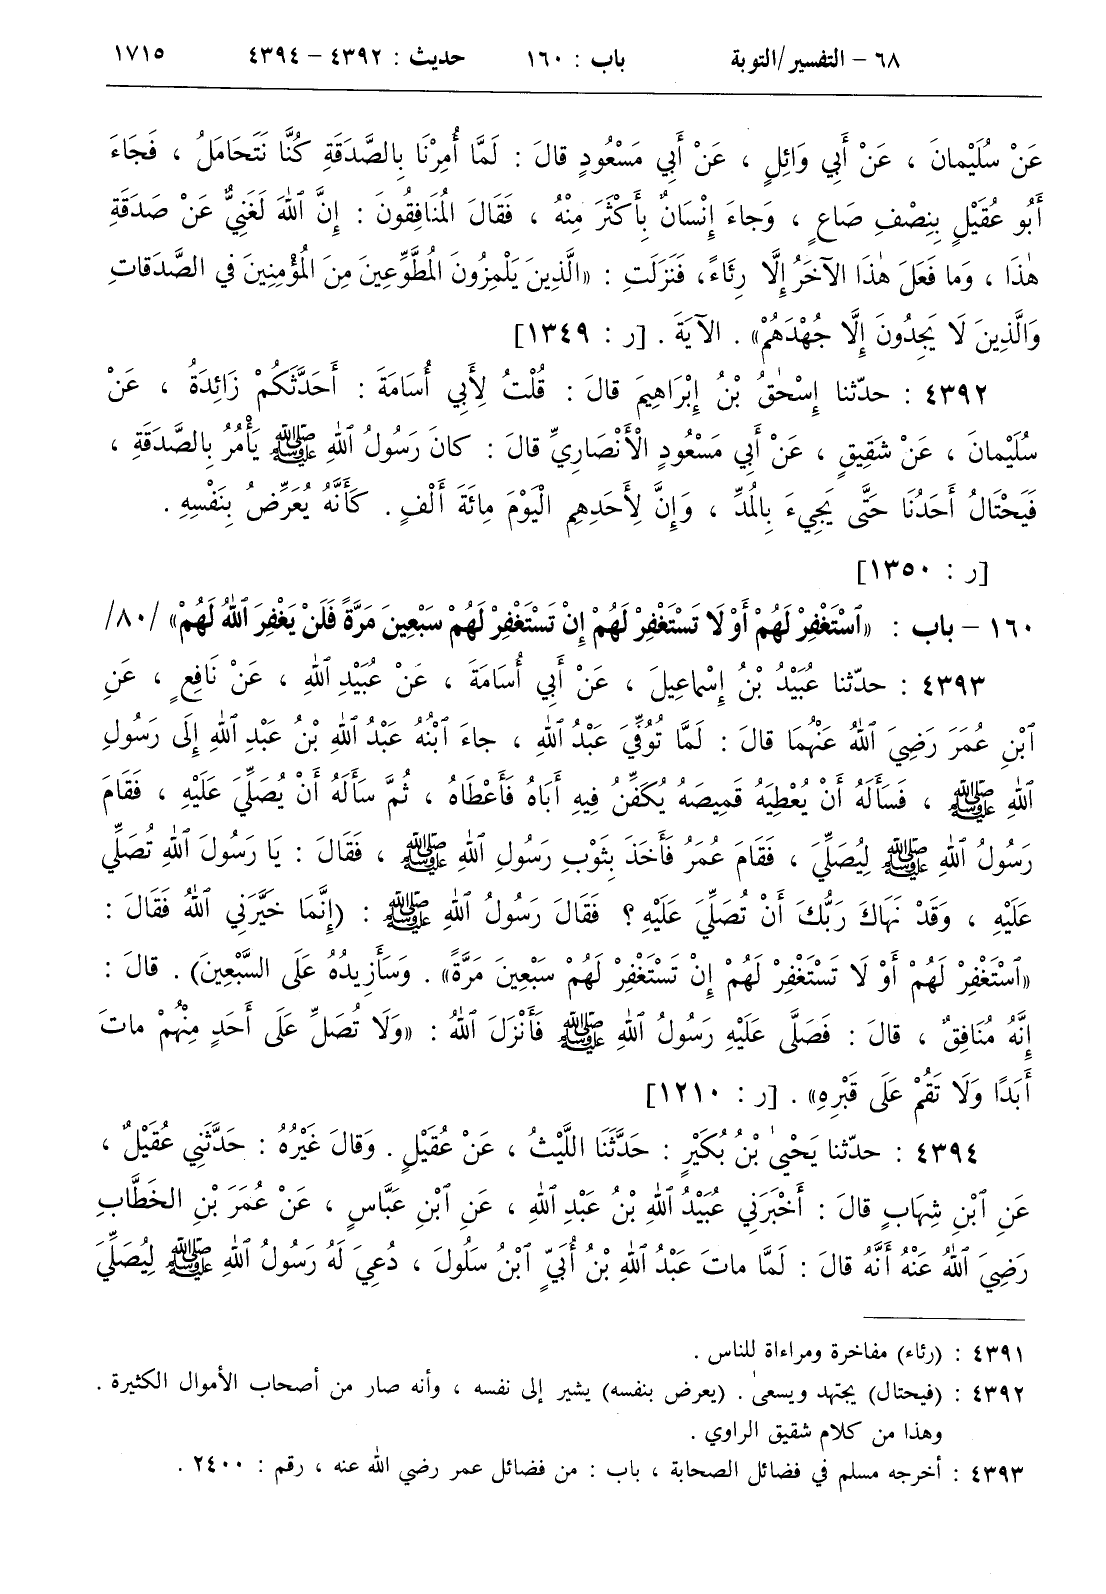 ٦٨ – التفسير/التوبة باب : ١٦٠ حديث : ٤٣٩٢ – ٤٣٩٤ ١٧١٥
عَنْ سُلَيْمانَ ، عَنْ أَبِي وَائِلٍ ، عَنْ أَبِي مَسْعُودٍ قالَ : لَمَّا أُمِرْنَا بِالصَّدَقَةِ كُنَّا نَتَحَامَلُ ، فَجَاءَ
أَبُو عُقَيْلٍ بِنِصْفِ صَاعٍ ، وَجاءَ إِنْسَانٌ بِأَكْثَرَ مِنْهُ ، فَقَالَ المُنَافِقُونَ : إِنَّ ٱللهَ لَغَنِيٌّ عَنْ صَدَقَةِ
هٰذَا ، وَما فَعَلَ هٰذَا الآخَرُ إِلَّا رِئَاءً، فَنَزَلَتِ : «الَّذِينَ يَلْمِزُونَ المُطَّوِّعِينَ مِنَ المُؤْمِنِينَ في الصَّدَقاتِ
وَالَّذِينَ لَا يَجِدُونَ إِلَّا جُهْدَهُمْ» . الآيَةَ . [ر : ١٣٤٩]
٤٣٩٢ : حدّثنا إِسْحٰقُ بْنُ إِبْرَاهِيمَ قالَ : قُلْتُ لِأَبِي أُسَامَةَ : أَحَدَّثَكُمْ زَائِدَةُ ، عَنْ
سُلَيْمانَ ، عَنْ شَقِيقٍ ، عَنْ أَبِي مَسْعُودٍ الْأَنْصَارِيِّ قالَ : كانَ رَسُولُ ٱللهِ ﷺ يَأْمُرُ بِالصَّدَقَةِ ،
فَيَحْتَالُ أَحَدُنَا حَتَّى يَجِيءَ بِالمُدِّ ، وَإِنَّ لِأَحَدِهِمِ الْيَوْمَ مِائَةَ أَلْفٍ . كَأَنَّهُ يُعَرِّضُ بِنَفْسِهِ .
[ر : ١٣٥٠]
١٦٠ – باب : «ٱسْتَغْفِرْ لَهُمْ أَوْ لَا تَسْتَغْفِرْ لَهُمْ إِنْ تَسْتَغْفِرْ لَهُمْ سَبْعِينَ مَرَّةً فَلَنْ يَغْفِرَ ٱللهُ لَهُمْ» /٨٠/
٤٣٩٣ : حدّثنا عُبَيْدُ بْنُ إِسْماعِيلَ ، عَنْ أَبِي أُسَامَةَ ، عَنْ عُبَيْدِ ٱللهِ ، عَنْ نَافِعٍ ، عَنِ
ٱبْنِ عُمَرَ رَضِيَ ٱللهُ عَنْهُمَا قالَ : لَمَّا تُوُفِّيَ عَبْدُ ٱللهِ ، جاءَ ٱبْنُهُ عَبْدُ ٱللهِ بْنُ عَبْدِ ٱللهِ إِلَى رَسُولِ
ٱللهِ ﷺ ، فَسَأَلَهُ أَنْ يُعْطِيَهُ قَمِيصَهُ يُكَفِّنُ فِيهِ أَبَاهُ فَأَعْطَاهُ ، ثُمَّ سَأَلَهُ أَنْ يُصَلِّيَ عَلَيْهِ ، فَقَامَ
رَسُولُ ٱللهِ ﷺ لِيُصَلِّيَ ، فَقَامَ عُمَرُ فَأَخَذَ بِثَوْبِ رَسُولِ ٱللهِ ﷺ ، فَقَالَ : يَا رَسُولَ ٱللهِ تُصَلِّي
عَلَيْهِ ، وَقَدْ نَهَاكَ رَبُّكَ أَنْ تُصَلِّيَ عَلَيْهِ ؟ فَقَالَ رَسُولُ ٱللهِ ﷺ : (إِنَّمَا خَيَّرَنِي ٱللهُ فَقَالَ :
«ٱسْتَغْفِرْ لَهُمْ أَوْ لَا تَسْتَغْفِرْ لَهُمْ إِنْ تَسْتَغْفِرْ لَهُمْ سَبْعِينَ مَرَّةً» . وَسَأَزِيدُهُ عَلَى السَّبْعِينَ) . قالَ :
إِنَّهُ مُنَافِقٌ ، قالَ : فَصَلَّى عَلَيْهِ رَسُولُ ٱللهِ ﷺ فَأَنْزَلَ ٱللهُ : «وَلَا تُصَلِّ عَلَى أَحَدٍ مِنْهُمْ ماتَ
أَبَدًا وَلَا تَقُمْ عَلَى قَبْرِهِ» . [ر : ١٢١٠]
٤٣٩٤ : حدّثنا يَحْيىٰ بْنُ بُكَيْرٍ : حَدَّثَنَا اللَّيْثُ ، عَنْ عُقَيْلٍ . وَقالَ غَيْرُهُ : حَدَّثَنِي عُقَيْلٌ ،
عَنِ ٱبْنِ شِهَابٍ قالَ : أَخْبَرَنِي عُبَيْدُ ٱللهِ بْنُ عَبْدِ ٱللهِ ، عَنِ ٱبْنِ عَبَّاسٍ ، عَنْ عُمَرَ بْنِ الخَطَّابِ
رَضِيَ ٱللهُ عَنْهُ أَنَّهُ قالَ : لَمَّا ماتَ عَبْدُ ٱللهِ بْنُ أُبَيٍّ ٱبْنُ سَلُولَ ، دُعِيَ لَهُ رَسُولُ ٱللهِ ﷺ لِيُصَلِّيَ
٤٣٩١ : (رئاء) مفاخرة ومراءاة للناس .
٤٣٩٢ : (فيحتال) يجتهد ويسعىٰ . (يعرض بنفسه) يشير إلى نفسه ، وأنه صار من أصحاب الأموال الكثيرة .
وهذا من كلام شقيق الراوي .
٤٣٩٣ : أخرجه مسلم في فضائل الصحابة ، باب : من فضائل عمر رضي الله عنه ، رقم : ٢٤٠٠ .